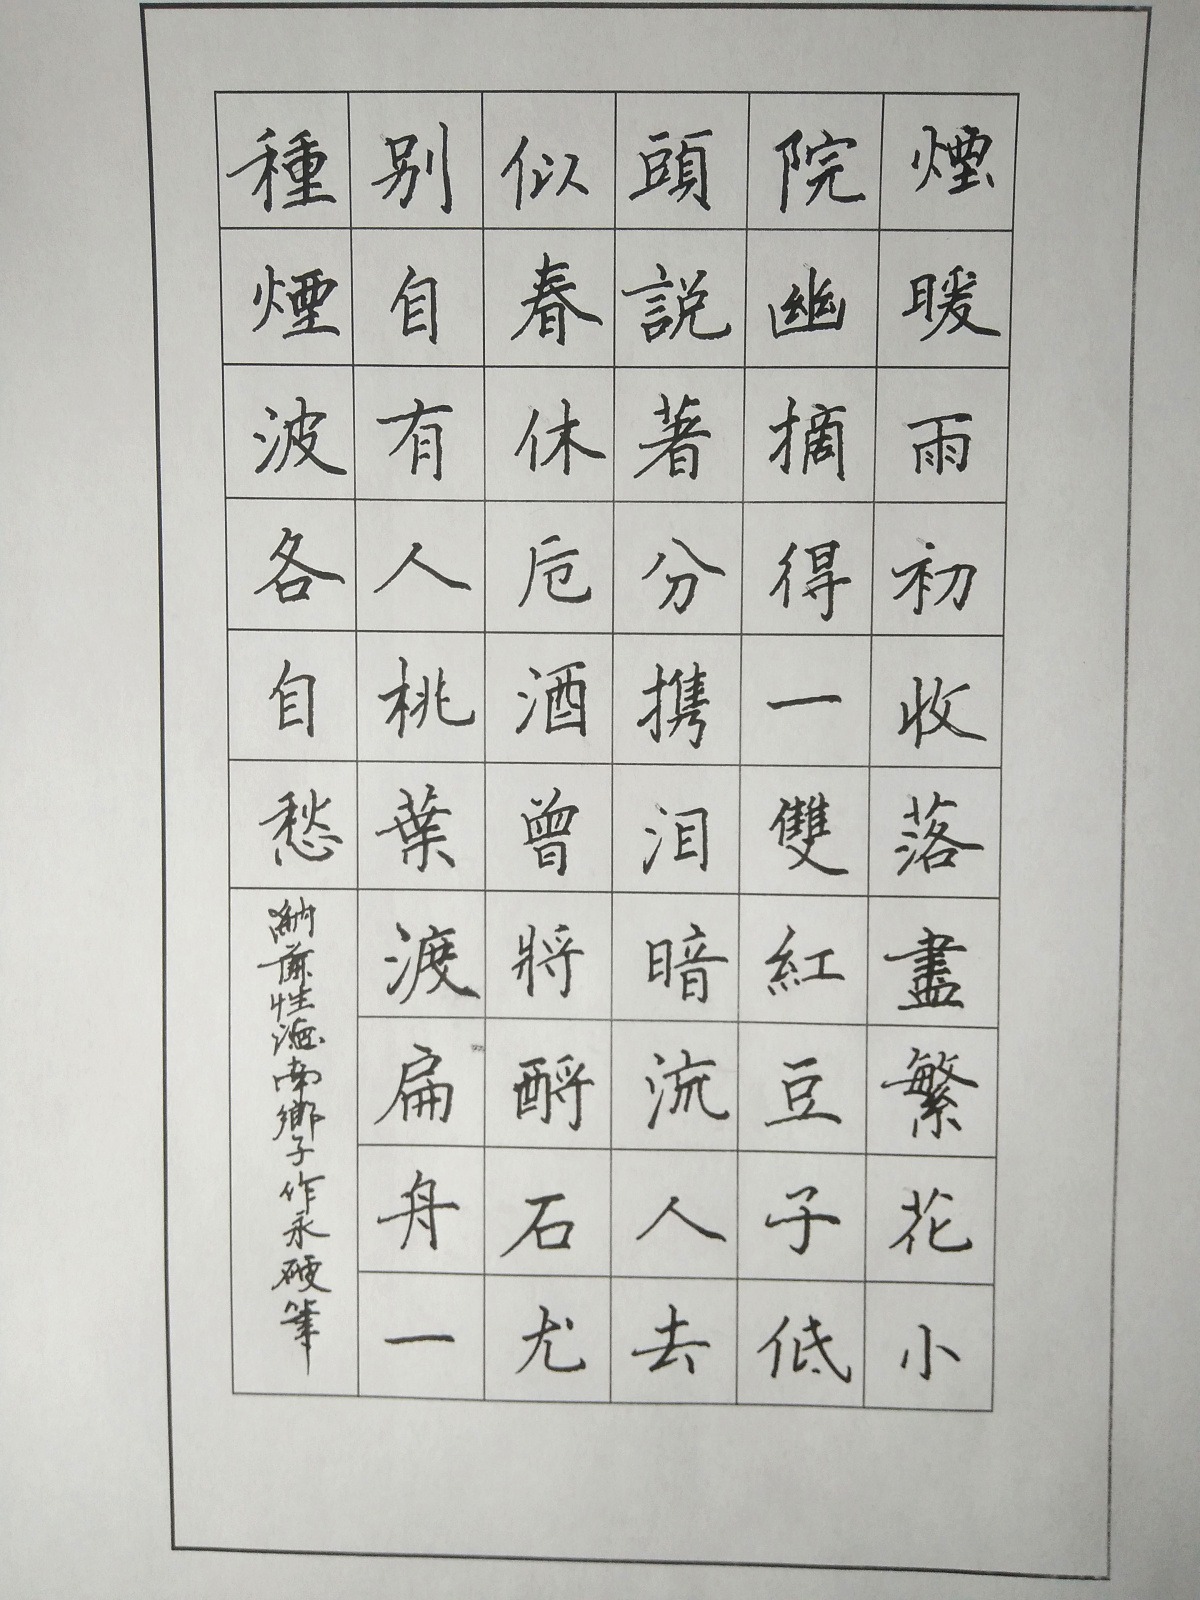 煙暖雨初收落盡繁花小
院幽摘得一雙紅豆子低
頭説著分携泪暗流人去
似春休卮酒曾將酹石尤
别自有人桃葉渡扁舟一
種煙波各自愁
納蘭性德南鄉子作永硬筆